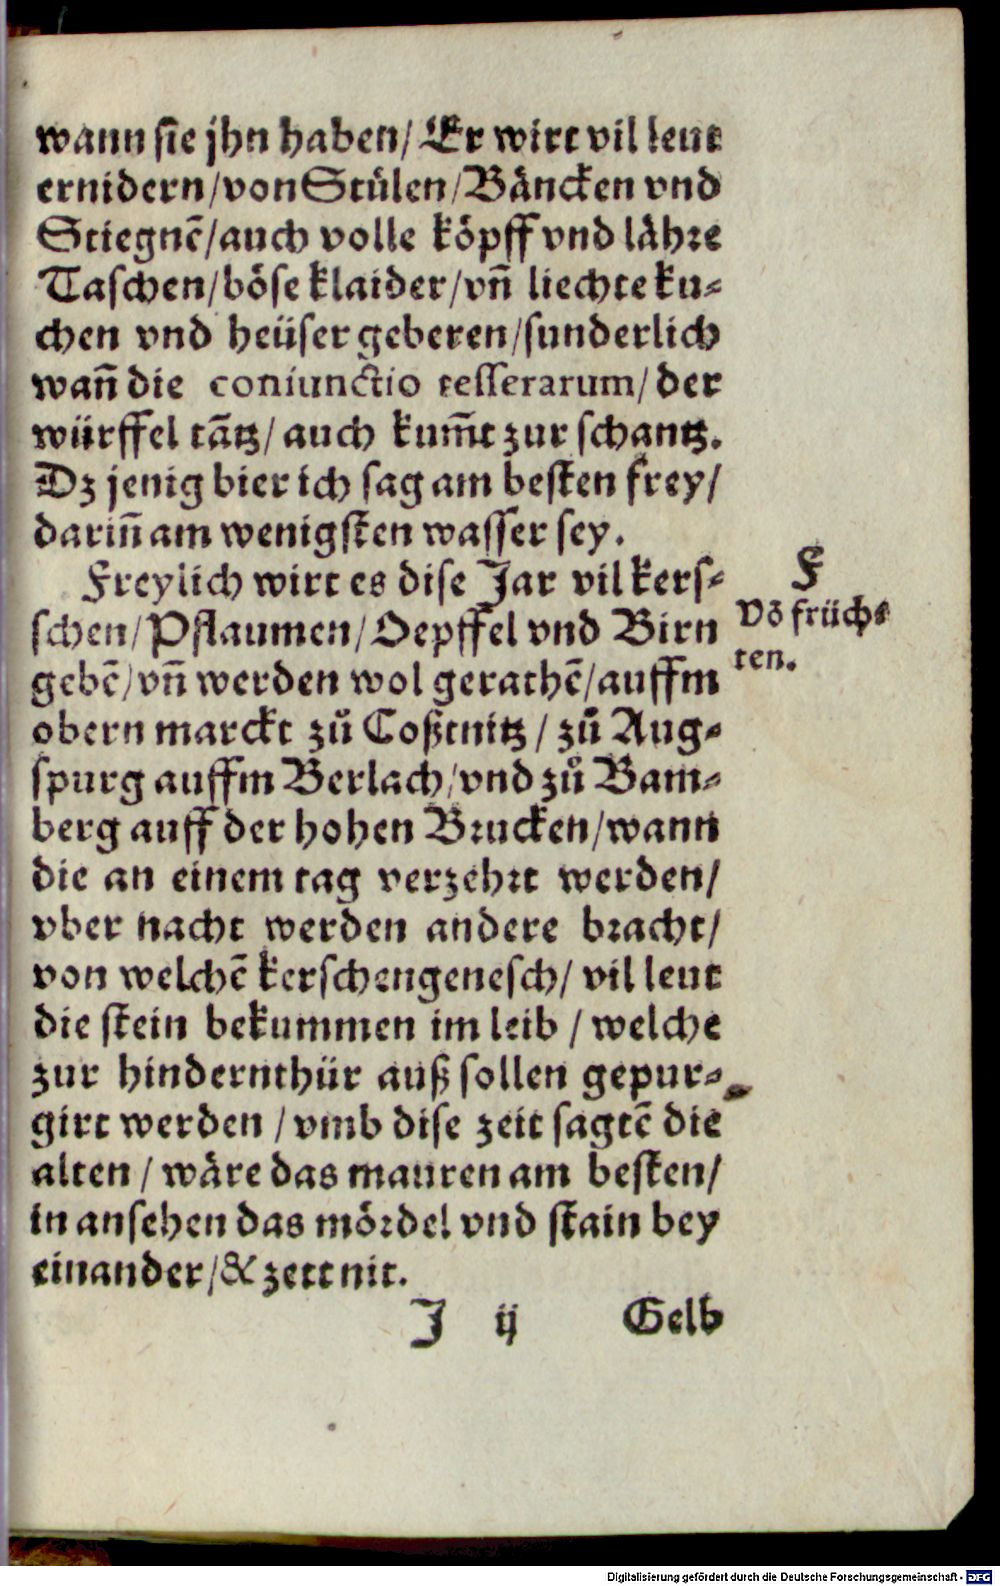 wann sie jhn haben/ Er wirt vil leut
ernidern/von Stůlen/Bäncken vnd
Stiegnē/auch volle köpff vnd lähre
Taschen/böse klaider/vñ liechte ku-
chen vnd heüser geberen/sunderlich
wañ die coniunctio tesserarum/ der
würffel tātz/ auch kum̃t zur schantz.
Dz jenig bier ich sag am besten frey/
dariñ am wenigsten wasser sey.
Freylich wirt es dise Jar vil kers-
schen/Pflaumen/Oepffel vnd Birn
gebē/vñ werden wol gerathē/auffm
obern marckt zů Coßtnitz / zů Aug-
spurg auffm Berlach/vnd zů Bam-
berg auff der hohen Brucken/wann
die an einem tag verzehrt werden/
vber nacht werden andere bracht/
von welchē kerschengenesch/ vil leut
die stein bekummen im leib / welche
zur hindernthür auß sollen gepur-
girt werden / vmb dise zeit sagtē die
alten / wäre das mauren am besten/
in ansehen das mördel vnd stain bey
einander/& zett nit.
F
Vō früch-
ten.
J ij Gelb
Digitalisierung gefördert durch die Deutsche Forschungsgemeinschaft - DFG